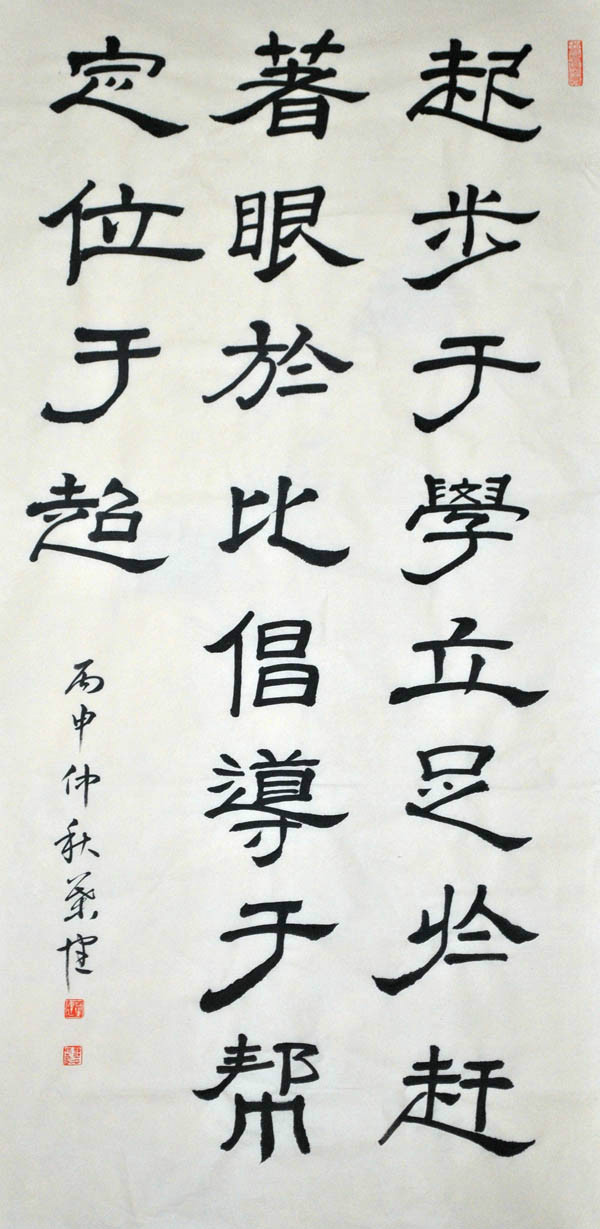 起步于學立足於赶
著眼於比倡導于帮
定位于超
丙申仲秋